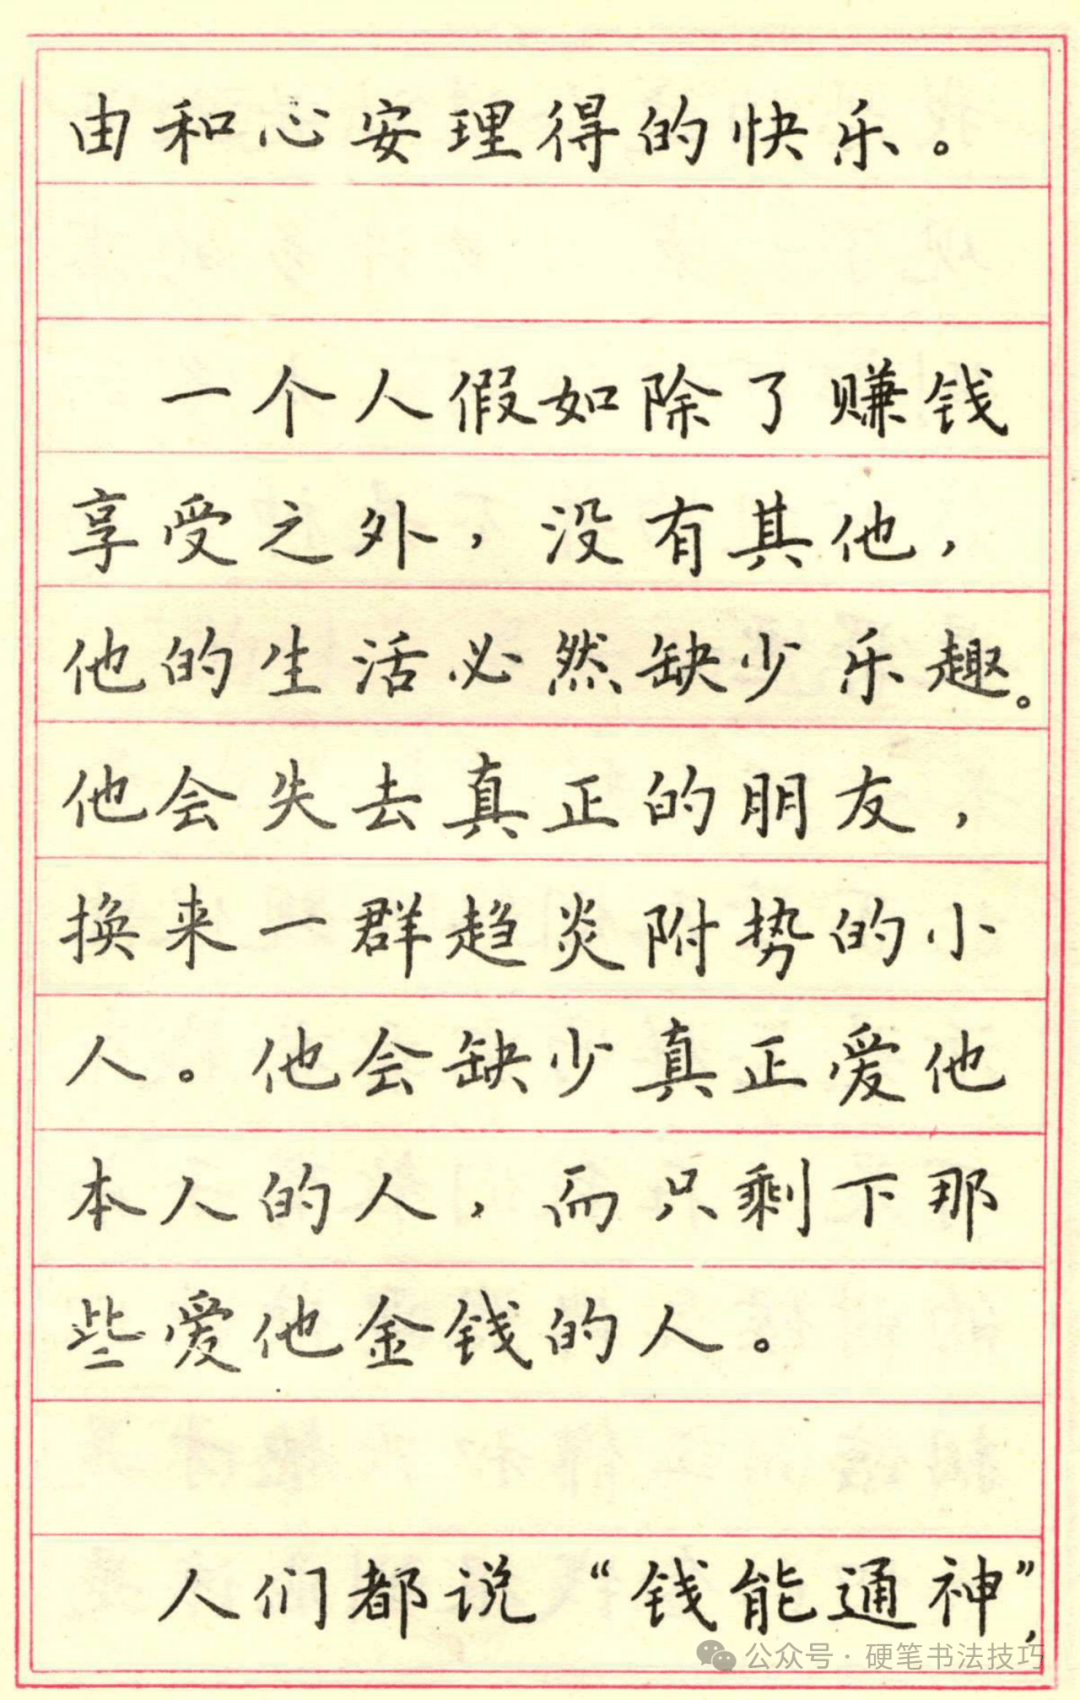 由和心安理得的快乐。
一个人假如除了赚钱
享受之外，没有其他，
他的生活必然缺少乐趣。
他会失去真正的朋友，
换来一群趋炎附势的小
人。他会缺少真正爱他
本人的人，而只剩下那
些爱他金钱的人。
人们都说“钱能通神”，
公众号·硬笔书法技巧